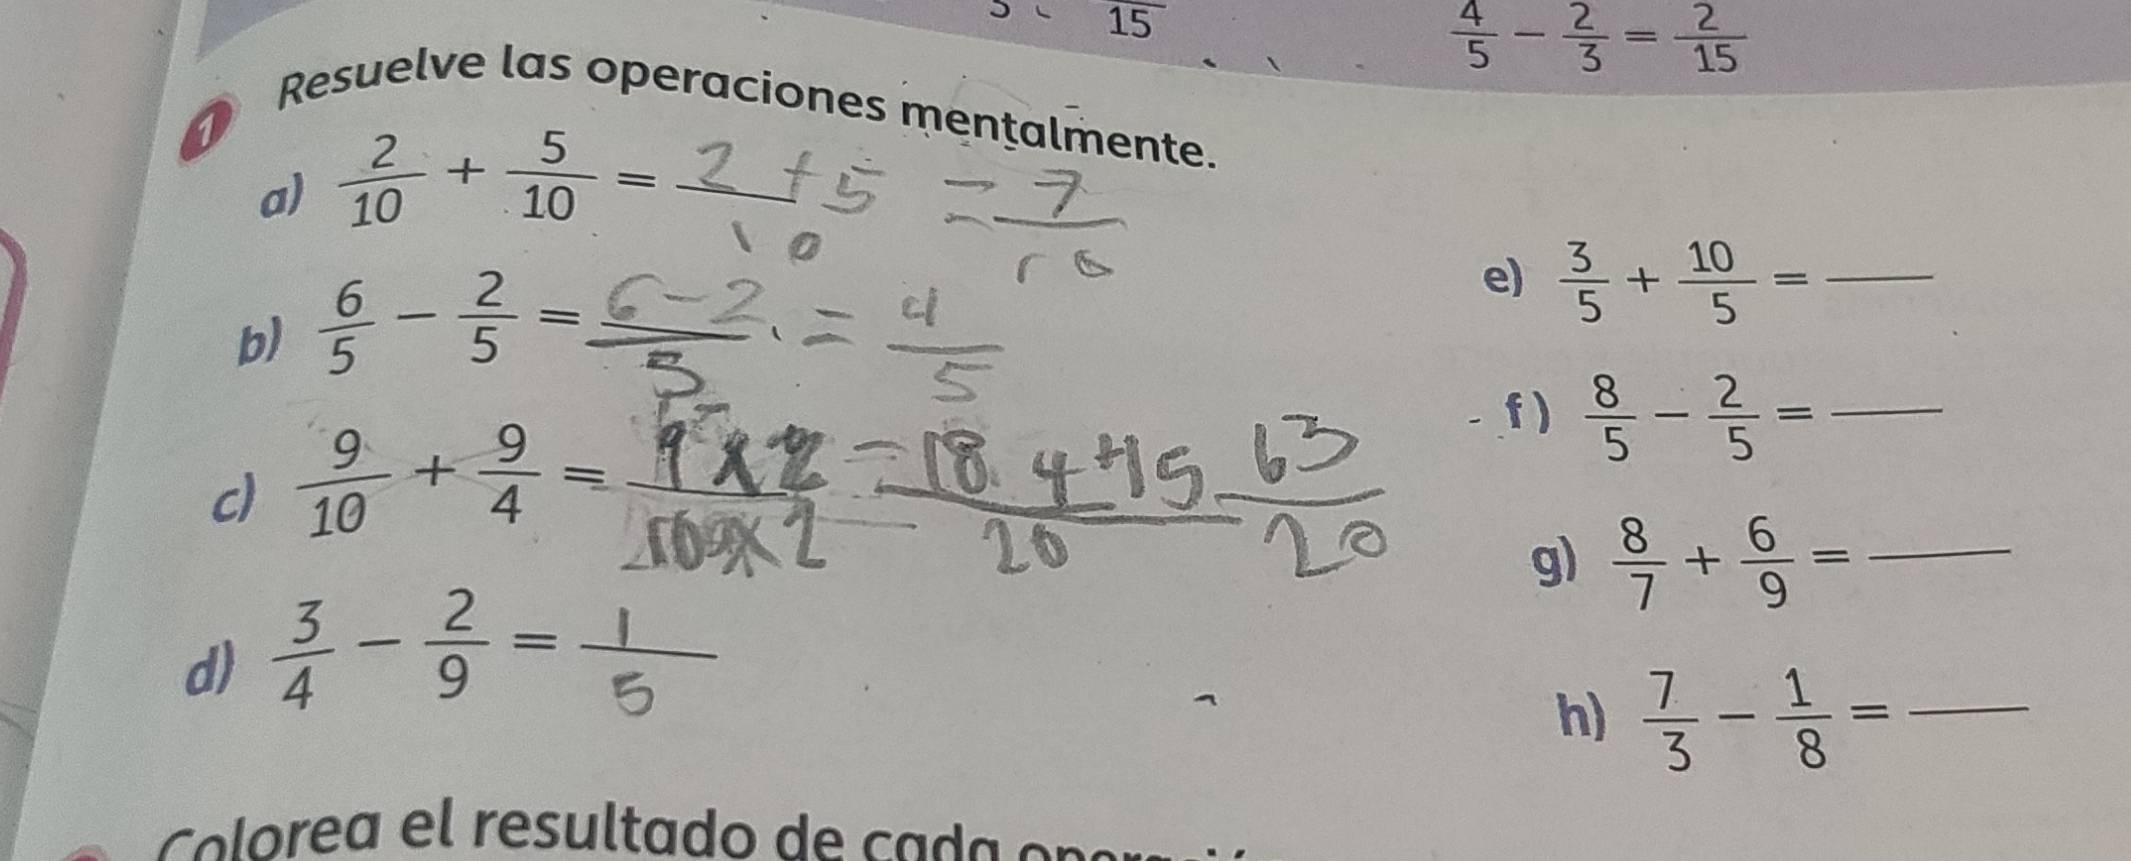 15
4/5 - 2/3 = 2/15
1 Resuelve las operaciones mentalmente.
a) 2/10 + 5/10 = 2+5/10 = 7/10
b) 6/5 - 2/5 = 6-2/5 = 4/5
c) 9/10 + 9/4 = 9x2/10x2 = 18 4+45/20 63/20
d) 3/4 - 2/9 = 1/5
e) 3/5 + 10/5 = ___
f) 8/5 - 2/5 = ___
g) 8/7 + 6/9 = ___
h) 7/3 - 1/8 = ___
Colorea el resultado de cada